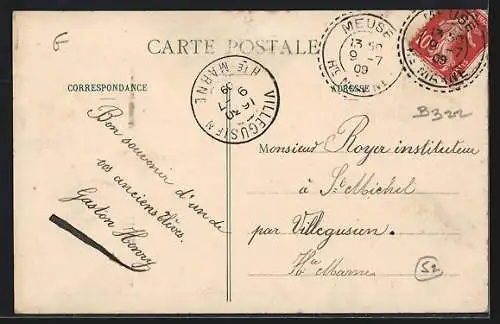 6
CARTE POSTALE
CORRESPONDANCE
ADRESSE
MEUSE
13 30
9 -7
09
HTE MARNE
VILLEGUSIEN
HTE-MARNE
9 -7
09
10
B322
Bon souvenir d'un de
vos anciens élèves.
Gaston Henry
Monsieur Royer instituteur
à St Michel
par Villegusien
Hte Marne
52